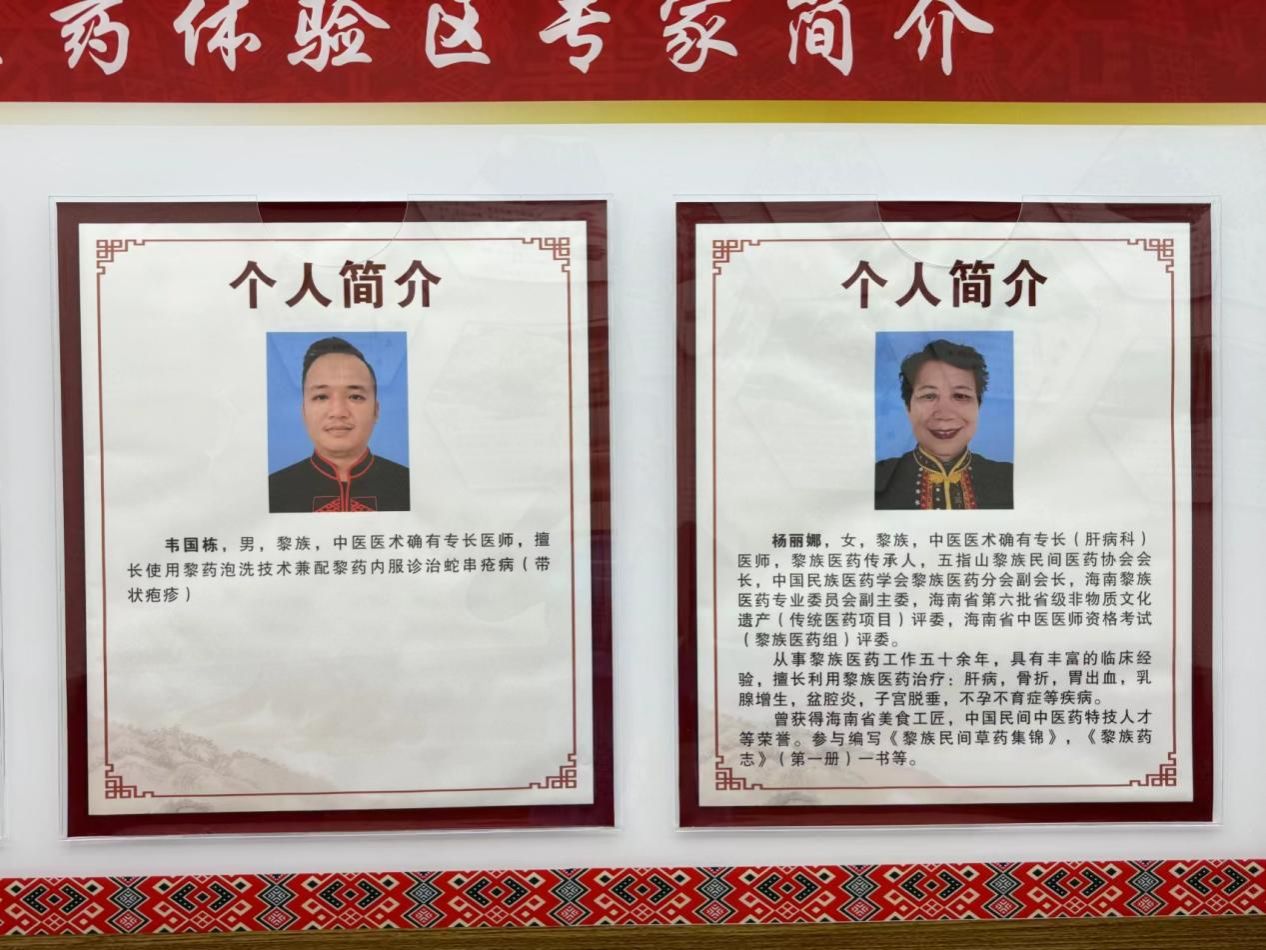 药体验区专家简介
个人简介
韦国栋，男，黎族，中医医术确有专长医师，擅
长使用黎药泡洗技术兼配黎药内服诊治蛇串疮病（带
状疱疹）
个人简介
杨丽娜，女，黎族，中医医术确有专长（肝病科）
医师，黎族医药传承人，五指山黎族民间医药协会会
长，中国民族医药学会黎族医药分会副会长，海南黎族
医药专业委员会副主委，海南省第六批省级非物质文化
遗产（传统医药项目）评委，海南省中医医师资格考试
（黎族医药组）评委。
从事黎族医药工作五十余年，具有丰富的临床经
验，擅长利用黎族医药治疗：肝病，骨折，胃出血，乳
腺增生，盆腔炎，子宫脱垂，不孕不育症等疾病。
曾获得海南省美食工匠，中国民间中医药特技人才
等荣誉。参与编写《黎族民间草药集锦》，《黎族药
志》（第一册）一书等。